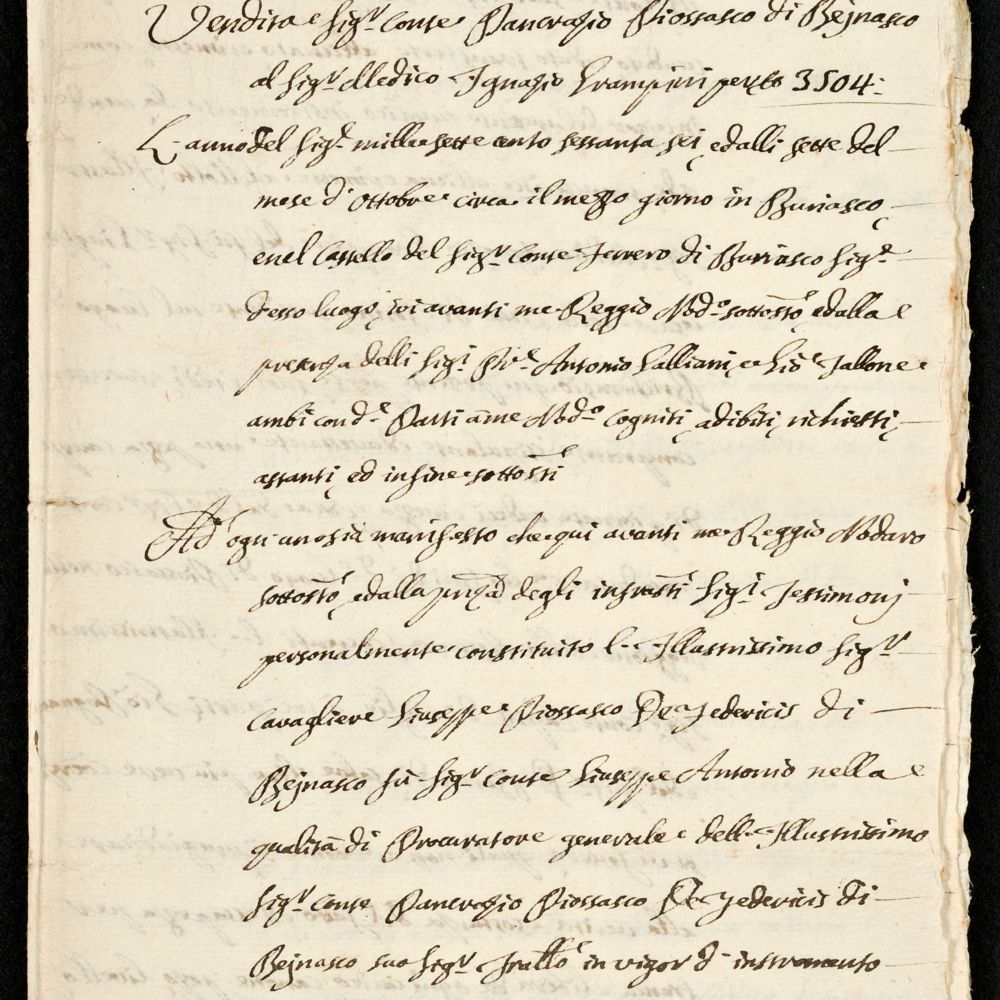 Vendita e Sig.r Conte Pancrazio Piossasco di Bejnasco
al Sig.r Medico Ignazio Grampini per £ 3504:
L'anno del Sig.e mille sette cento sessanta sei, ed alli sette del
mese d'Ottobre circa il mezzo giorno in Buriasco,
e nel Castello del Sig.r Conte Ferrero di Buriasco Sig.e
d'esso luogo, ivi avanti me Reggio Nod.o sottost.o, ed alla
presenza delli Sig.i Antonio Galliani, e Gio Fallone
ambi con d.e Parti a me Nod.o cogniti, adibiti, richiesti,
astanti, ed infine sottost.i
Ad ogn'uno sia manifesto che qui avanti me Reggio Nodaro
sottost.o, ed alla pnza degli infrasti Sig.i Testimonj
personalmente constituito l'Illustrissimo Sig.r
Cavagliere Giuseppe Piossasco De Federicis di
Bejnasco fù Sig.r Conte Giuseppe Antonio nella
qualità di Procuratore generale dell'Illustrissimo
Sig.r Conte Pancrazio Piossasco De Federicis di
Bejnasco suo Sig.r Fratello in vigor d'instromento